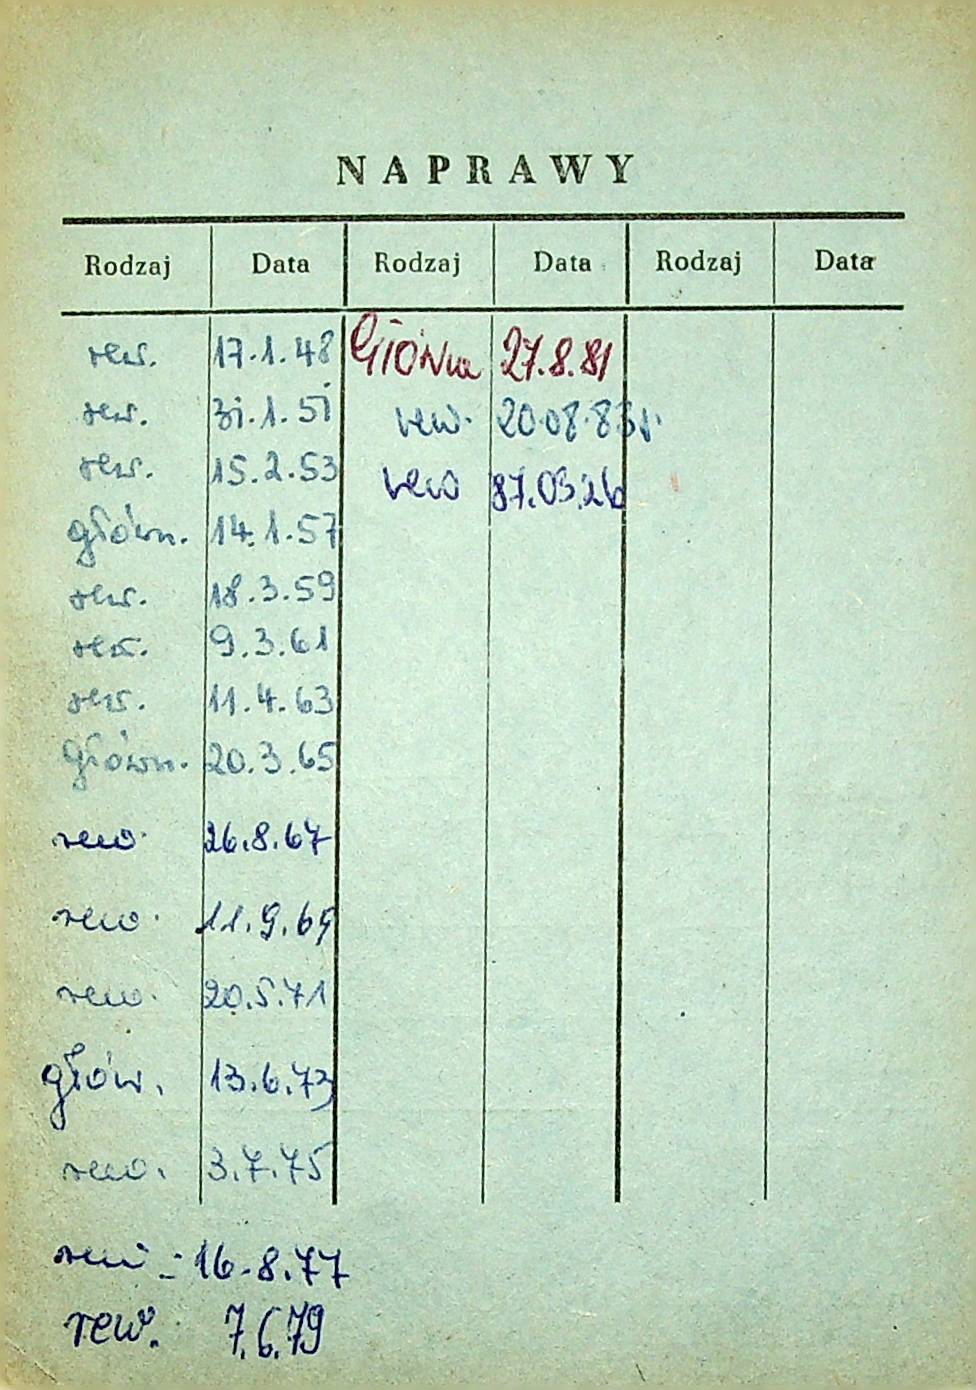 NAPRAWY
Rodzaj Data Rodzaj Data Rodzaj Data
rew. 17.1.48 Główna 27.8.81
rew. 31.1.51 rew. 20.08.83r.
rew. 15.2.53 rew 87.03.26
główn. 14.1.57
rew. 18.3.59
rew. 9.3.61
rew. 11.4.63
główn. 20.3.65
rew. 26.8.67
rew. 11.9.69
rew. 20.5.71
głów. 13.6.73
rew. 3.7.75
rew - 16.8.77
rew. 7.6.79